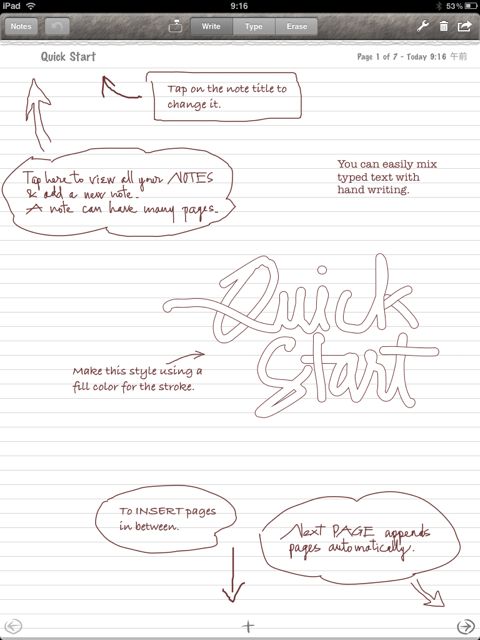 iPad 9:16 53%
Notes Write Type Erase
Quick Start Page 1 of 7 - Today 9:16 午前
Tap on the note title to
change it.
Tap here to view all your NOTES
& add a new note.
A note can have many pages.
You can easily mix
typed text with
hand writing.
Quick
Start
Make this style using a
fill color for the stroke.
To INSERT pages
in between.
Next PAGE appends
pages automatically.